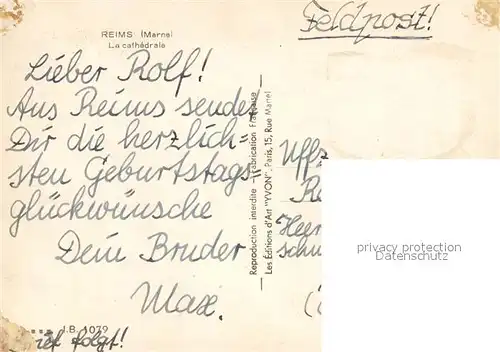 REIMS (Marne)
La cathédrale
Feldpost!
Lieber Rolf!
Aus Reims sendet
Dir die herzlich=
sten Geburtstags=
glückwünsche
Dein Bruder
Max.
J.B. 1079
folgt!
Reproduction interdite - Fabrication Française
Les Editions d'Art "YVON", Paris, 15, Rue Martel
Uffz
privacy protection
Datenschutz